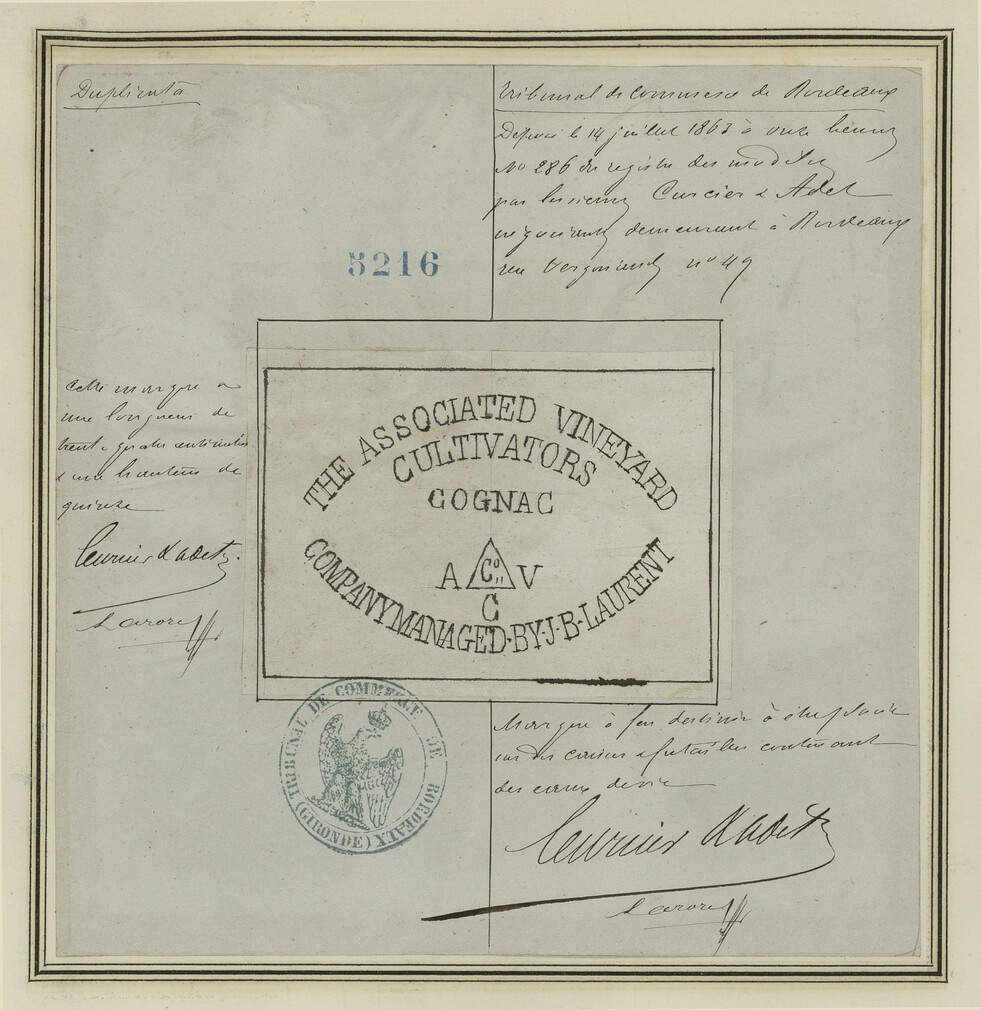 Duplicata
Tribunal de Commerce de Bordeaux
Depose le 14 juillet 1863 à onze heures
No 286 du registre des modeles
par les sieurs Curcier & Adet
negociants demeurant à Bordeaux
rue nº 49
5216
Cette marque a
une longueur de
trente quatre centimetres
& une hauteur de
quinze
Curcier & adet
THE ASSOCIATED VINEYARD
CULTIVATORS
COGNAC
A Co V
C
COMPANY MANAGED·BY·J·B·LAURENT
TRIBUNAL DE COMMERCE DE BORDEAUX
(GIRONDE)
Marque à feu destinée à être
sur des caisses & futailles contenant
des eaux de vie
Curcier & adet